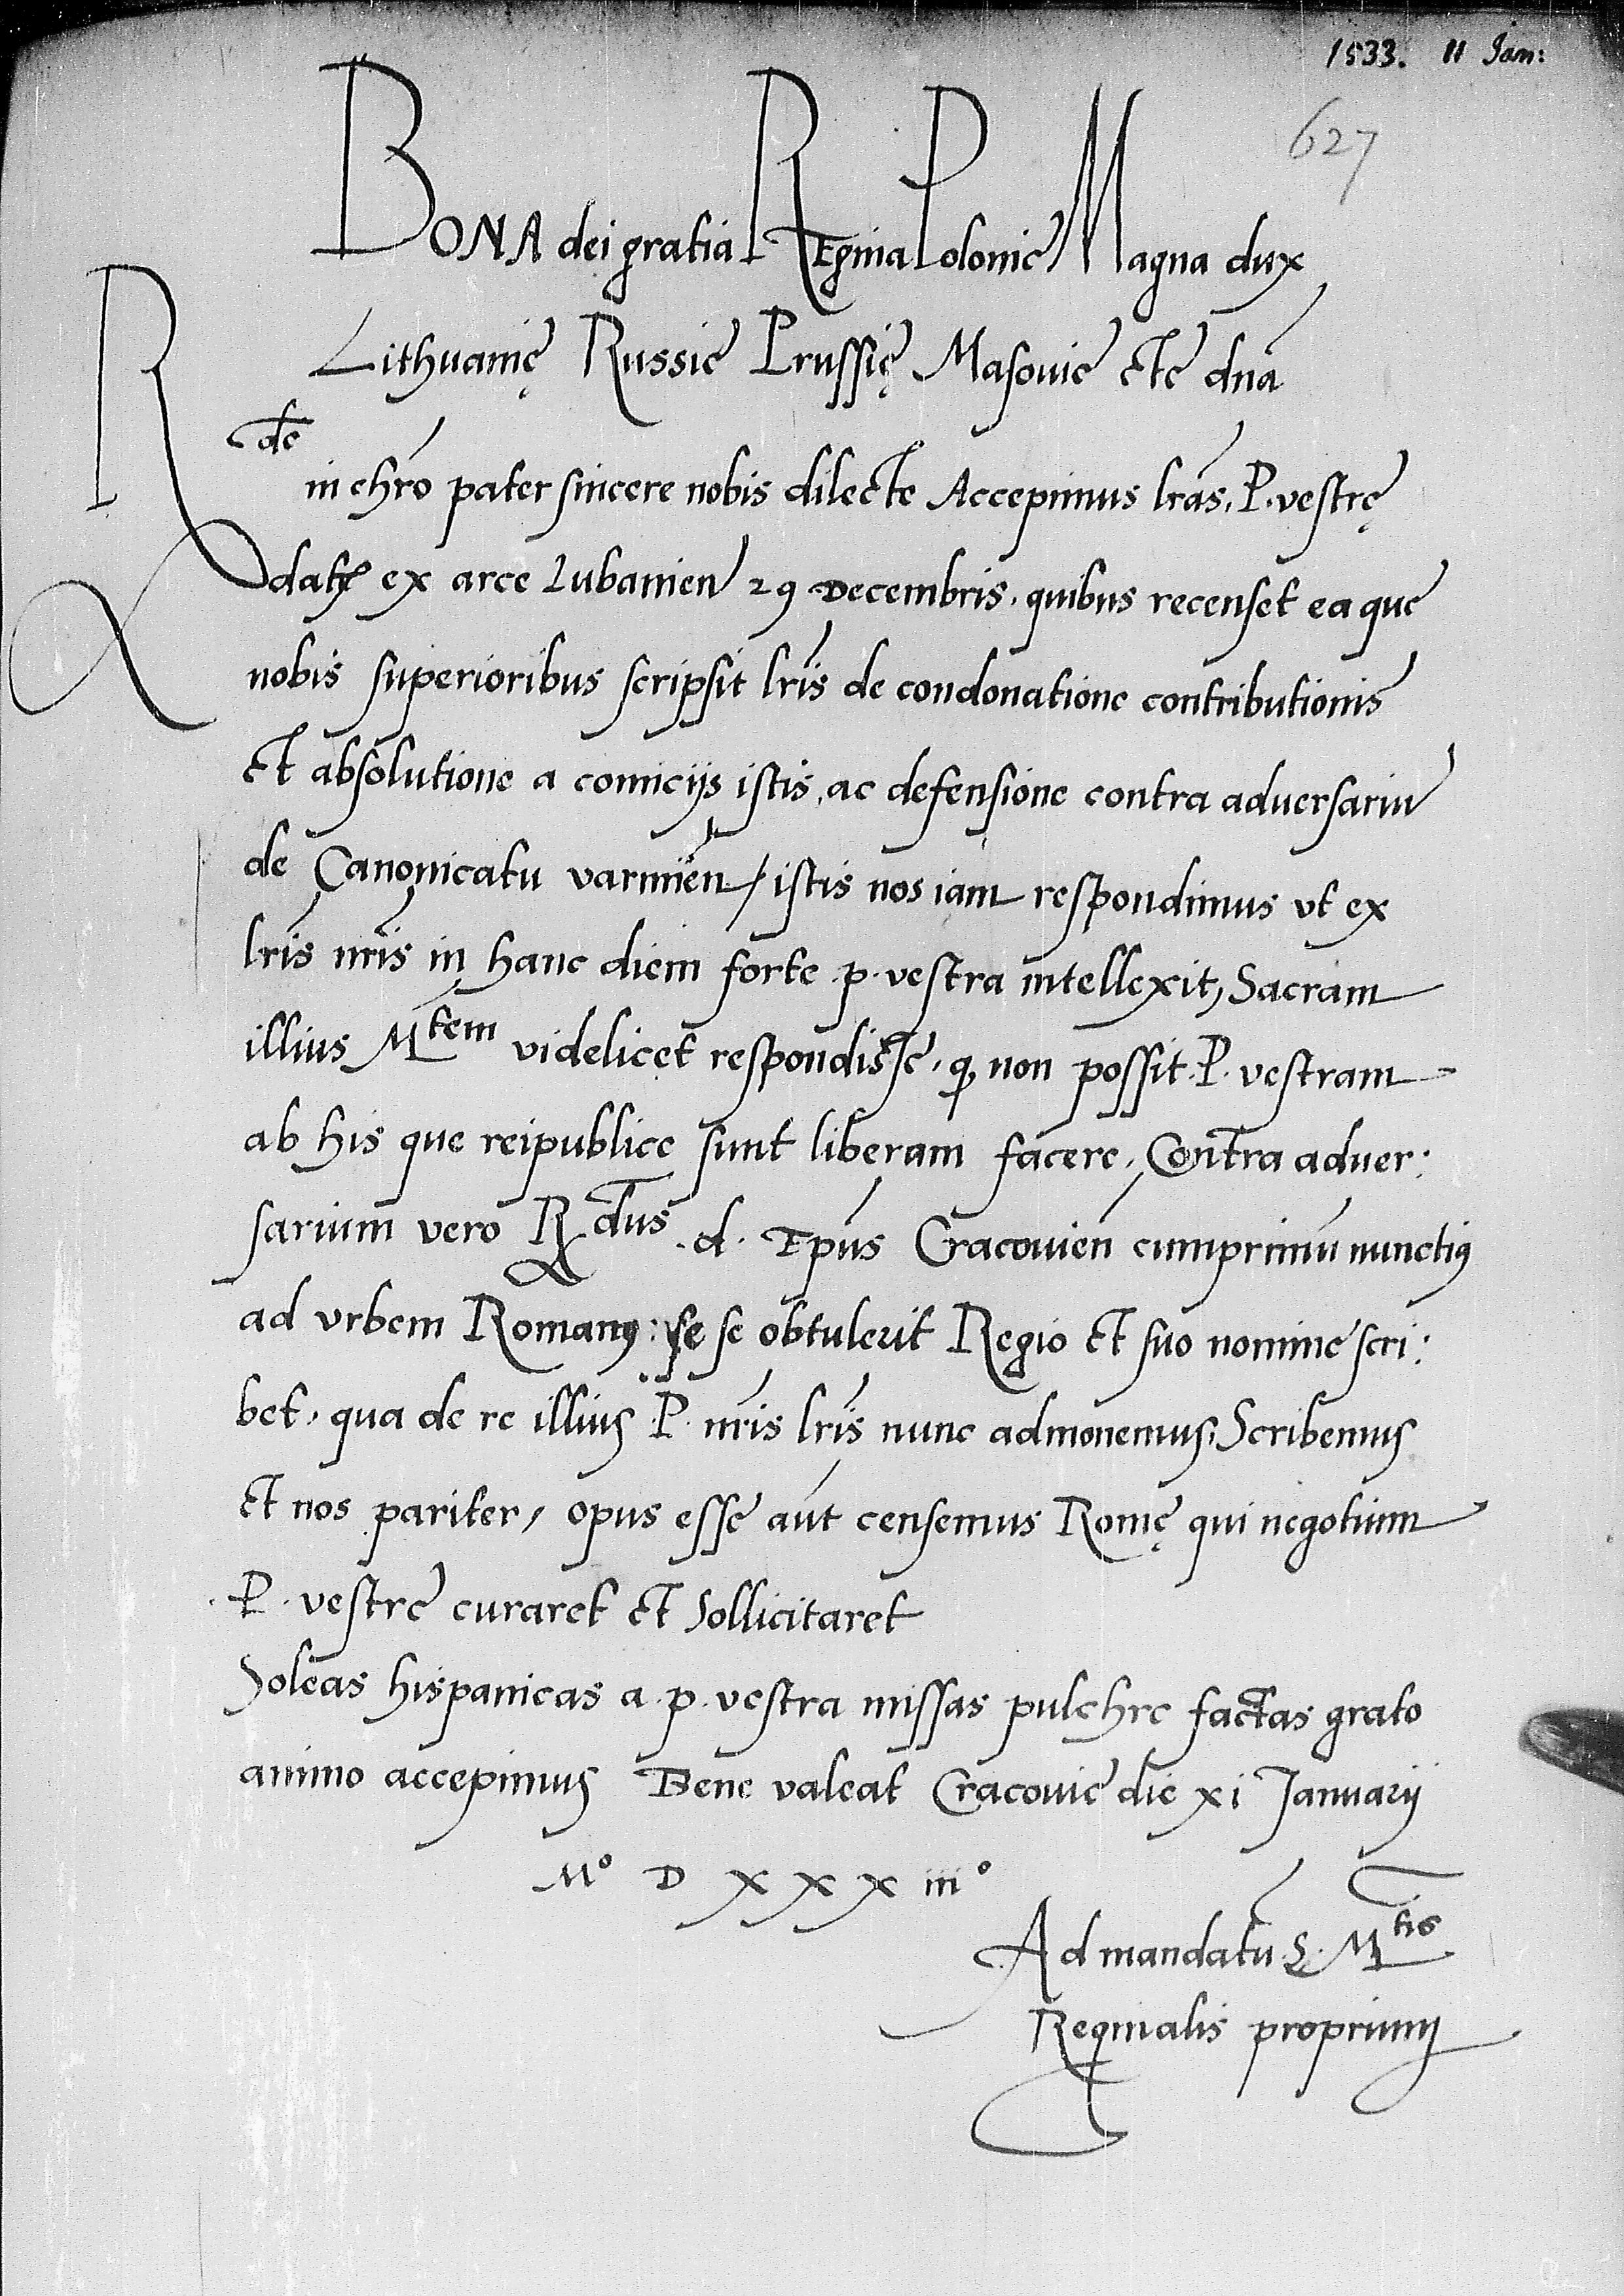 1533. 11 Jan:
627
BONA dei gratia REgina Polonie Magna dux
Lithuanię Russie Prussię Masovie etc dna
Rde
in chro pater sincere nobis dilecte Accepimus lras. P. vestrę
ex arce Lubamien 29 Decembris. quibus recenset ea que
nobis superioribus scripsit lris de condonatione contributionis
et absolutione a comicijs istis, ac defensione contra adversariu
de Canonicatu varmien / istis nos iam respondimus ut ex
lris nris in hanc diem forte .p. vestra intellexit, Sacram
illius Mtem videlicet respondisse, q non possit .P. vestram
ab his que reipublice sunt liberam facere, Contra adver:
sarium vero Rdus .d. Epus Cracovien cumprimu nunctius
ad urbem Romanam: se se obtulerit Regio et suo nomine scri:
bet, qua de re illius .P. nris lris nunc admonemus, Scribemus
et nos pariter, opus esse aut censemus Romę qui negotium
.P. vestre curaret et sollicitaret
Soleas hispanicas a .p. vestra missas pulchre factas grato
animo accepimus Bene valeat Cracovie die xi Januarij
Mo D X X X iii o
Ad mandatu .S. Mtis
Reginalis proprium